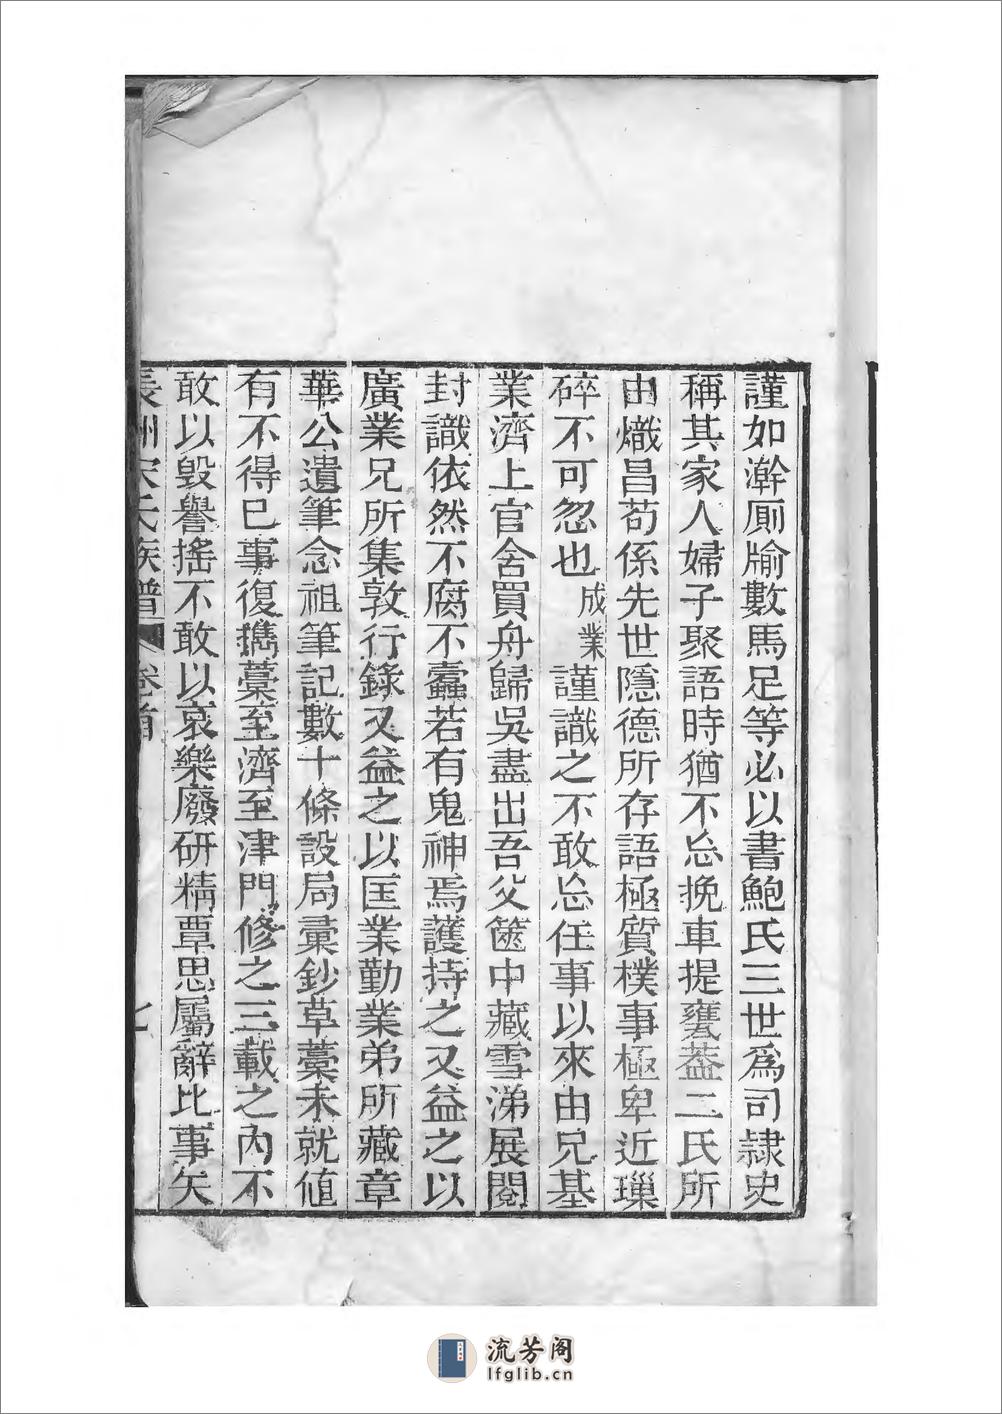 謹如澣厠牏數馬足等必以書鮑氏三世爲司隸史
稱其家人婦子聚語時猶不忘挽車提甕葢二氏所
由熾昌苟係先世隱德所存語極質樸事極卑近璅
碎不可忽也成業謹識之不敢忘任事以來由兄基
業濟上官舍買舟歸吳盡出吾父篋中藏雪涕展閱
封識依然不腐不蠹若有鬼神焉護持之又益之以
廣業兄所集敦行錄又益之以匡業勤業弟所藏章
華公遺筆念祖筆記數十條設局彙鈔草藁未就値
有不得已事復攜藁至濟至津門修之三載之內不
敢以毀譽搖不敢以哀樂廢研精覃思屬辭比事矢
長洲宋氏族譜 卷首 七
流芳阁
lfglib.cn